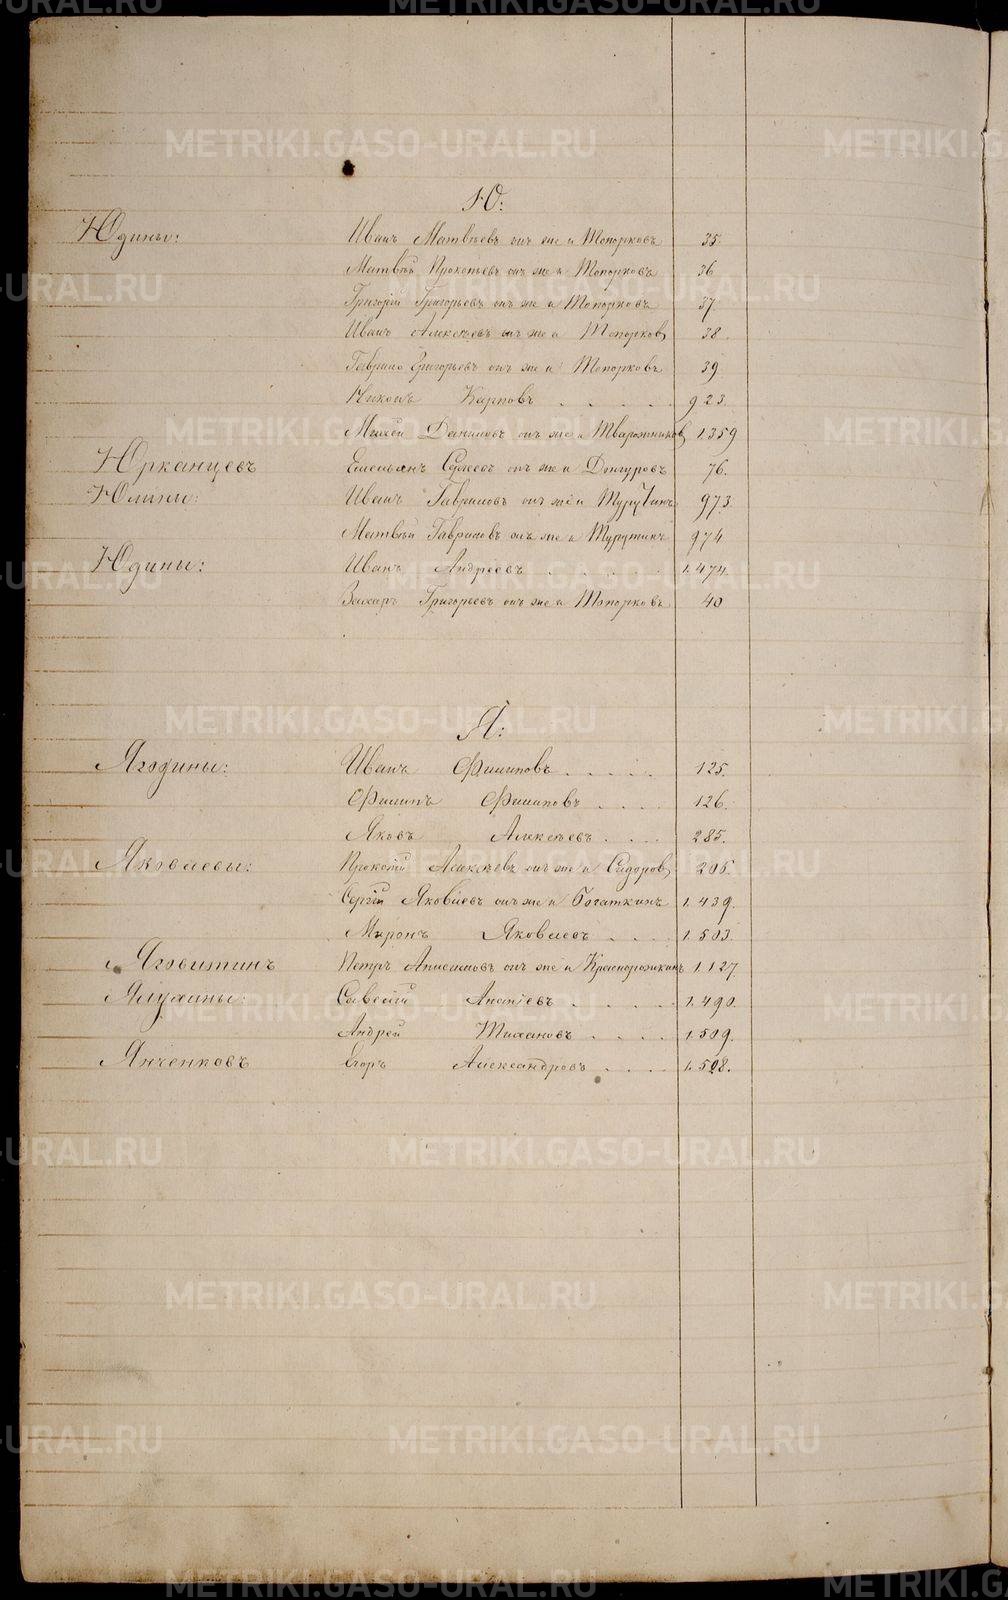 Ю:
Юдины: Иванъ Матвѣевъ онъ же и Топорковъ 35
Матвѣй Прокопьевъ онъ же и Топорковъ 36
Григорій Григорьевъ онъ же и Топорковъ 37
Иванъ Алексѣевъ онъ же и Топорковъ 38.
Гаврило Григорьевъ онъ же и Топорковъ 39
Никонъ Карповъ . . . . . 923.
Даниловъ онъ же и Творожниковъ 1.359
Юрканцевъ Емельянъ онъ же и 76.
Юлины: Иванъ Гавриловъ онъ же и Турутинъ 973.
Матвѣй Гавриловъ онъ же и Турутинъ 974
Юдины: Иванъ Андреевъ . . . . . 1.474.
Захаръ Григорьевъ онъ же и Топорковъ 40
Я:
Ягодины: Иванъ Филиповъ . . . . . 125.
Филипъ Филиповъ . . . . 126.
Яковъ Алексѣевъ . . . . 285.
Яковлевы: Прокопій Алексѣевъ онъ же и Сидоровъ 205.
Сергій Яковлевъ онъ же и Богаткинъ 1.439.
Миронъ Яковлевъ . . . . 1.503.
Яговитинъ Петръ Анисимовъ онъ же и 1.127
Ялухины: Савватій Ананіевъ . . . . . 1.490.
Андрей Тихановъ . . . . 1.509.
Янченковъ Егоръ Александровъ . . . . 1.528.
METRIKI.GASO-URAL.RU